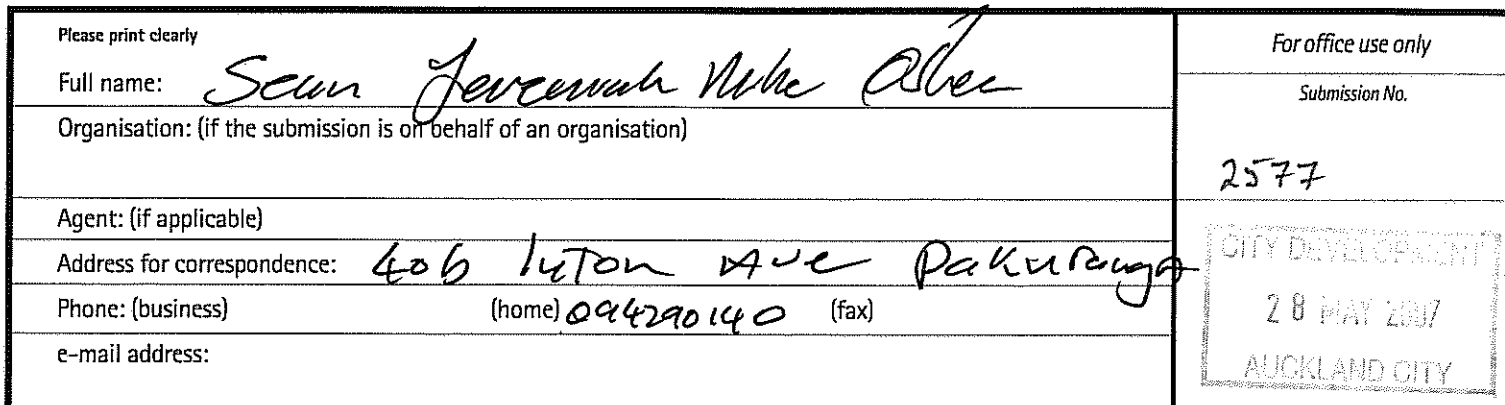 Please print clearly
Full name: Sean Jeremiah
Organisation: (if the submission is on behalf of an organisation)
Agent: (if applicable)
Address for correspondence: Ave Pakuranga
Phone: (business) (home) 094290140 (fax)
e-mail address:
For office use only
Submission No.
2577
CITY DEVELOPMENT
28 MAY 2007
AUCKLAND CITY